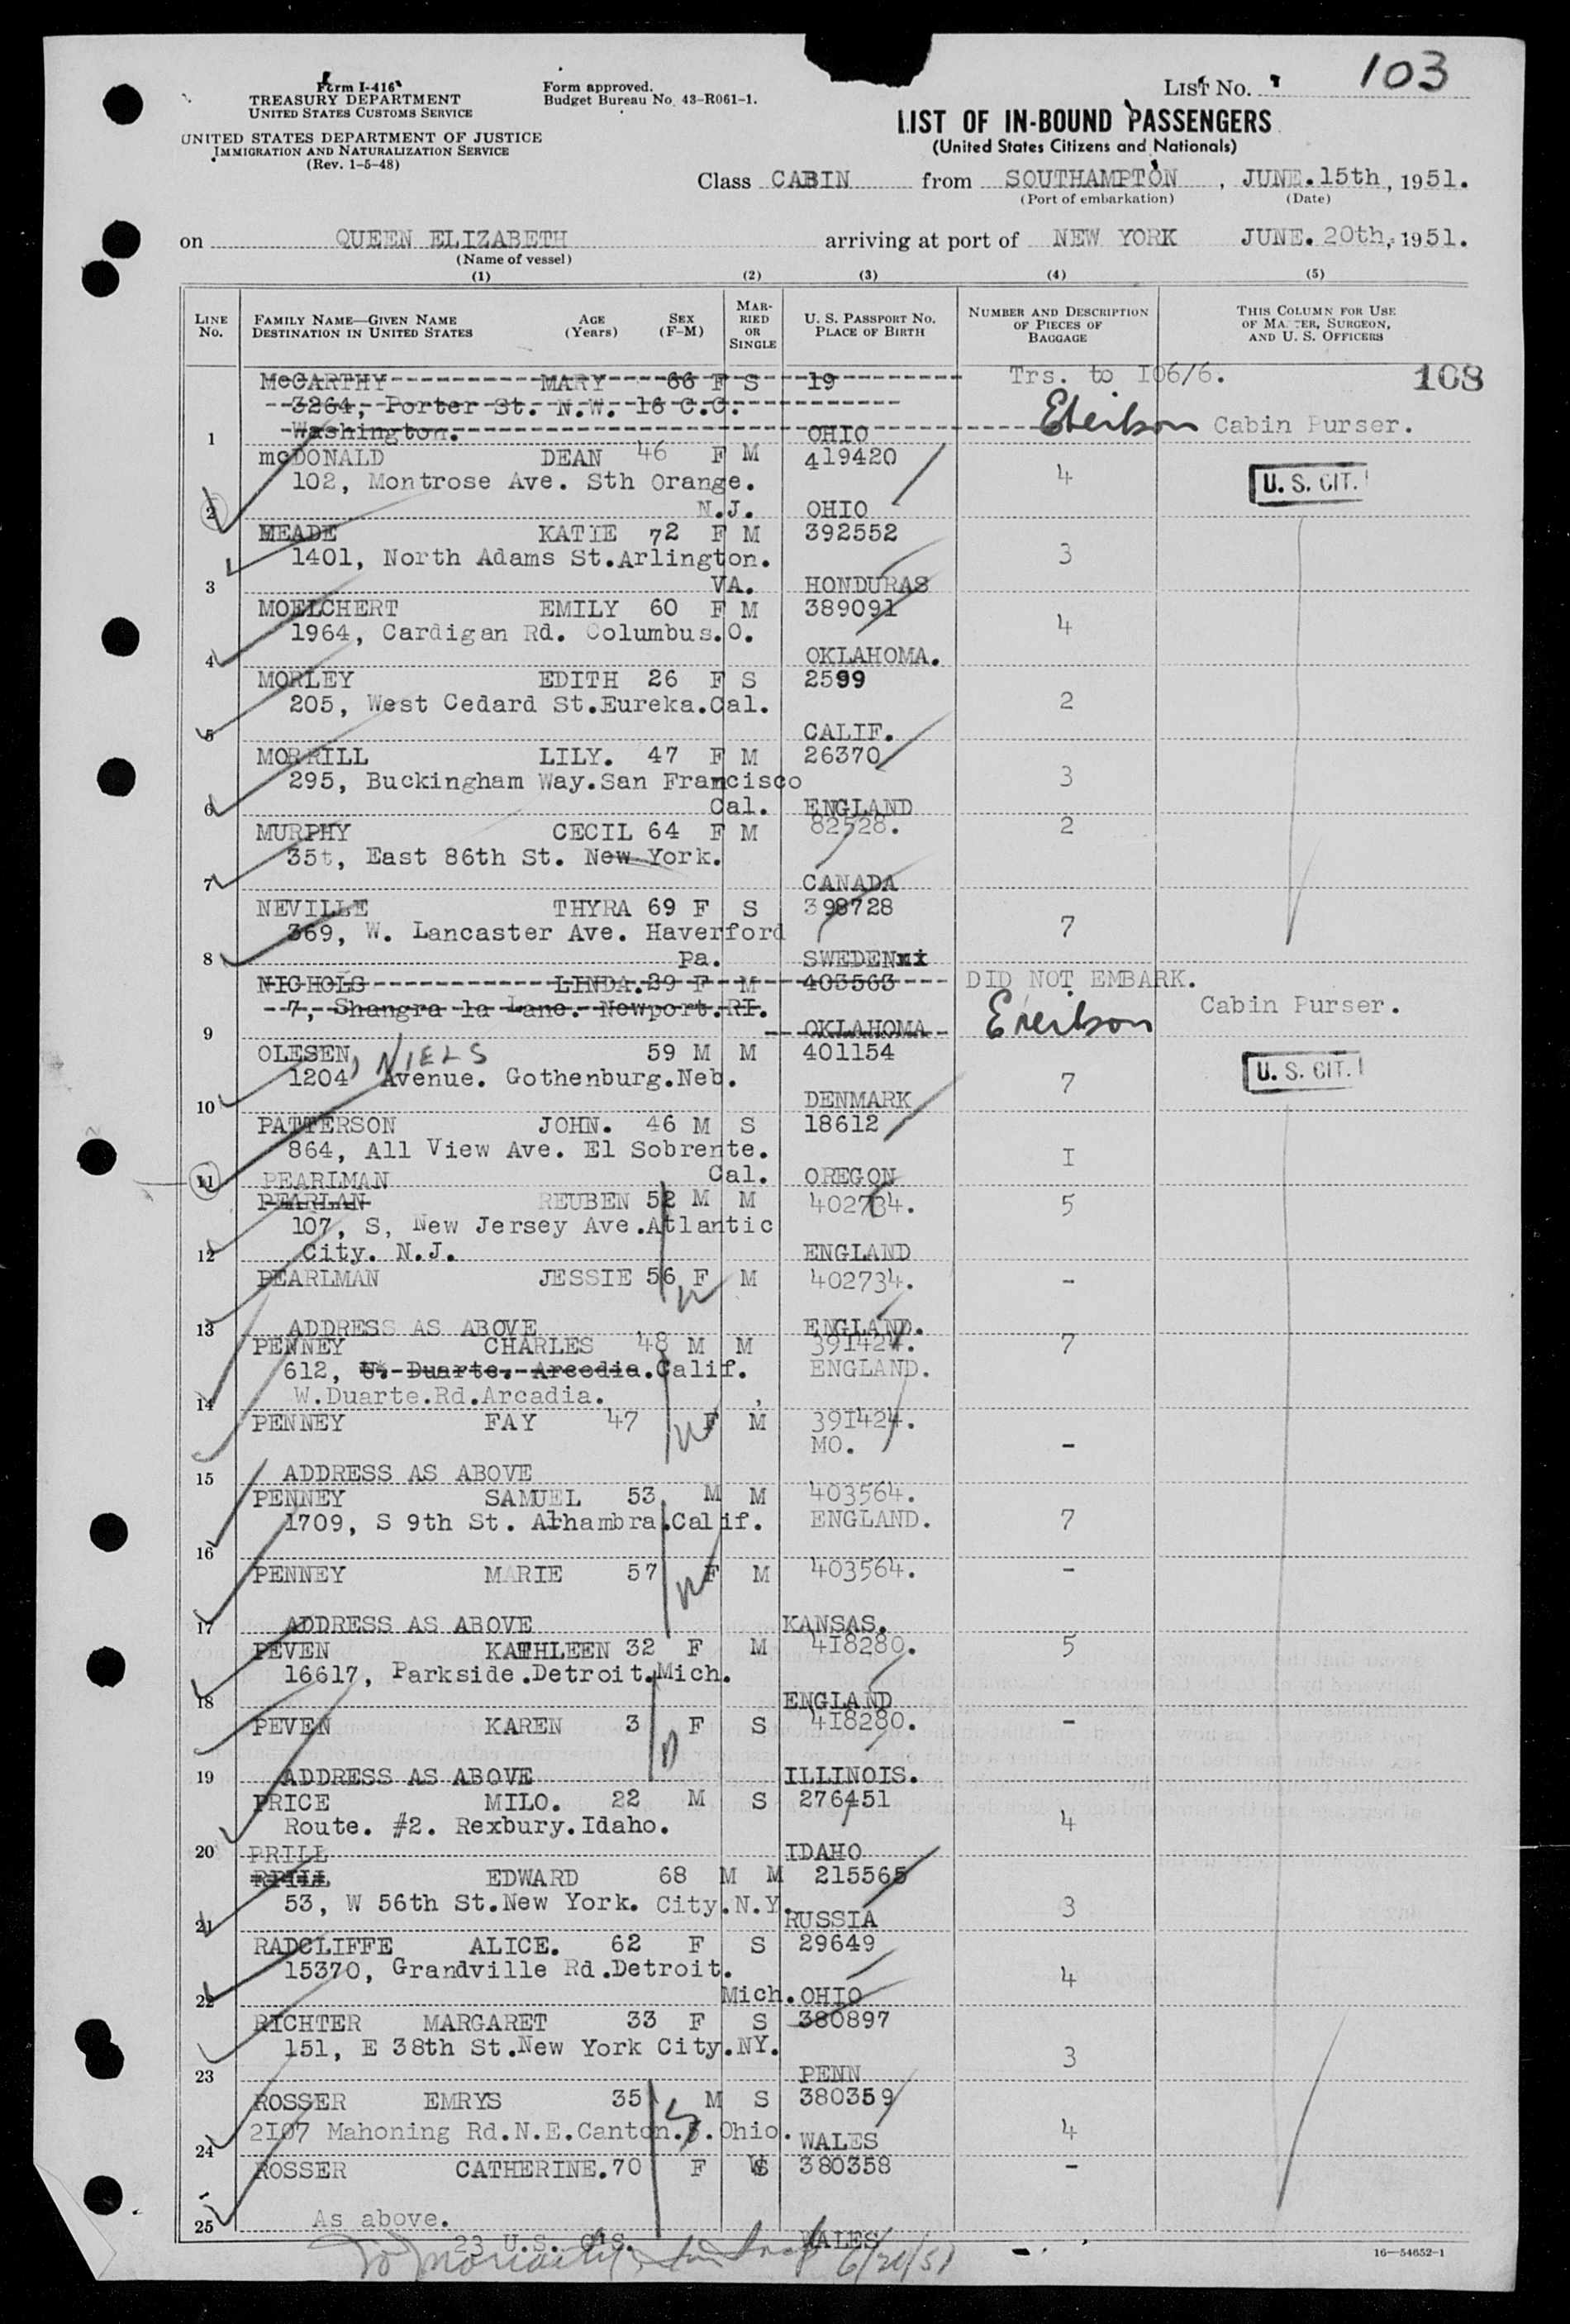 Form I-416
TREASURY DEPARTMENT
UNITED STATES CUSTOMS SERVICE
UNITED STATES DEPARTMENT OF JUSTICE
IMMIGRATION AND NATURALIZATION SERVICE
(Rev. 1-5-48)
Form approved.
Budget Bureau No. 43-R061-1.
LIST No. 103
LIST OF IN-BOUND PASSENGERS
(United States Citizens and Nationals)
Class CABIN from SOUTHAMPTON, JUNE.15th, 1951.
(Port of embarkation) (Date)
on QUEEN ELIZABETH arriving at port of NEW YORK JUNE. 20th, 1951.
(Name of vessel)
(1) (2) (3) (4) (5)
LINE No. FAMILY NAME—GIVEN NAME DESTINATION IN UNITED STATES AGE (Years) SEX (F-M) MARRIED OR SINGLE U. S. PASSPORT No. PLACE OF BIRTH NUMBER AND DESCRIPTION OF PIECES OF BAGGAGE THIS COLUMN FOR USE OF MASTER, SURGEON, AND U. S. OFFICERS
McCARTHY MARY 66 F S 19 Trs. to I06/6. 108
3264, Porter St. N.W. 16 C.C.
Cabin Purser.
1 Washington. OHIO
mcDONALD DEAN 46 F M 419420
102, Montrose Ave. Sth Orange. 4 U. S. CIT.
2 N.J. OHIO
MEADE KATIE 72 F M 392552
1401, North Adams St.Arlington. 3
3 VA. HONDURAS
MOELCHERT EMILY 60 F M 389091
1964, Cardigan Rd. Columbus.O. 4
4 OKLAHOMA.
MORLEY EDITH 26 F S 2599
205, West Cedard St.Eureka.Cal. 2
5 CALIF.
MORRILL LILY. 47 F M 26370
295, Buckingham Way.San Francisco 3
6 Cal. ENGLAND
MURPHY CECIL 64 F M 82528. 2
35t, East 86th St. New York.
7 CANADA
NEVILLE THYRA 69 F S 398728
369, W. Lancaster Ave. Haverford 7
8 Pa. SWEDEN
NICHOLS LINDA.29 F M 403563 DID NOT EMBARK.
7, Shangra la Lane. Newport.RI. Cabin Purser.
9 OKLAHOMA
OLESEN, NIELS 59 M M 401154
1204 Avenue. Gothenburg.Neb. 7 U. S. CIT.
10 DENMARK
PATTERSON JOHN. 46 M S 18612
864, All View Ave. El Sobrente. I
11 Cal. OREGON
PEARLMAN
PEARLAN REUBEN 52 M M 402734. 5
107, S, New Jersey Ave.Atlantic
12 City. N.J. ENGLAND
PEARLMAN JESSIE 56 F M 402734. -
13 ADDRESS AS ABOVE ENGLAND.
PENNEY CHARLES 48 M M 391424. 7
612, U. Duarte. Arcedia.Calif. ENGLAND.
14 W.Duarte.Rd.Arcadia.
PENNEY FAY 47 F M 391424.
MO. -
15 ADDRESS AS ABOVE
PENNEY SAMUEL 53 M M 403564.
1709, S 9th St. Alhambra.Calif. ENGLAND. 7
16
PENNEY MARIE 57 F M 403564. -
17 ADDRESS AS ABOVE KANSAS.
PEVEN KATHLEEN 32 F M 418280. 5
16617, Parkside.Detroit.Mich.
18 ENGLAND
PEVEN KAREN 3 F S 418280. -
19 ADDRESS AS ABOVE ILLINOIS.
PRICE MILO. 22 M S 276451
Route. #2. Rexbury.Idaho. 4
20 IDAHO
PRILL
RPILL EDWARD 68 M M 215565
53, W 56th St.New York. City.N.Y. 3
21 RUSSIA
RADCLIFFE ALICE. 62 F S 29649
15370, Grandville Rd.Detroit. 4
22 Mich. OHIO
RICHTER MARGARET 33 F S 380897
151, E 38th St.New York City.NY. 3
23 PENN
ROSSER EMRYS 35 M S 380359
2I07 Mahoning Rd.N.E.Canton. Ohio. 4
24 WALES
ROSSER CATHERINE.70 F W 380358 -
As above.
25 WALES
23 U.S. Cits.
6/20/51
16—54652-1